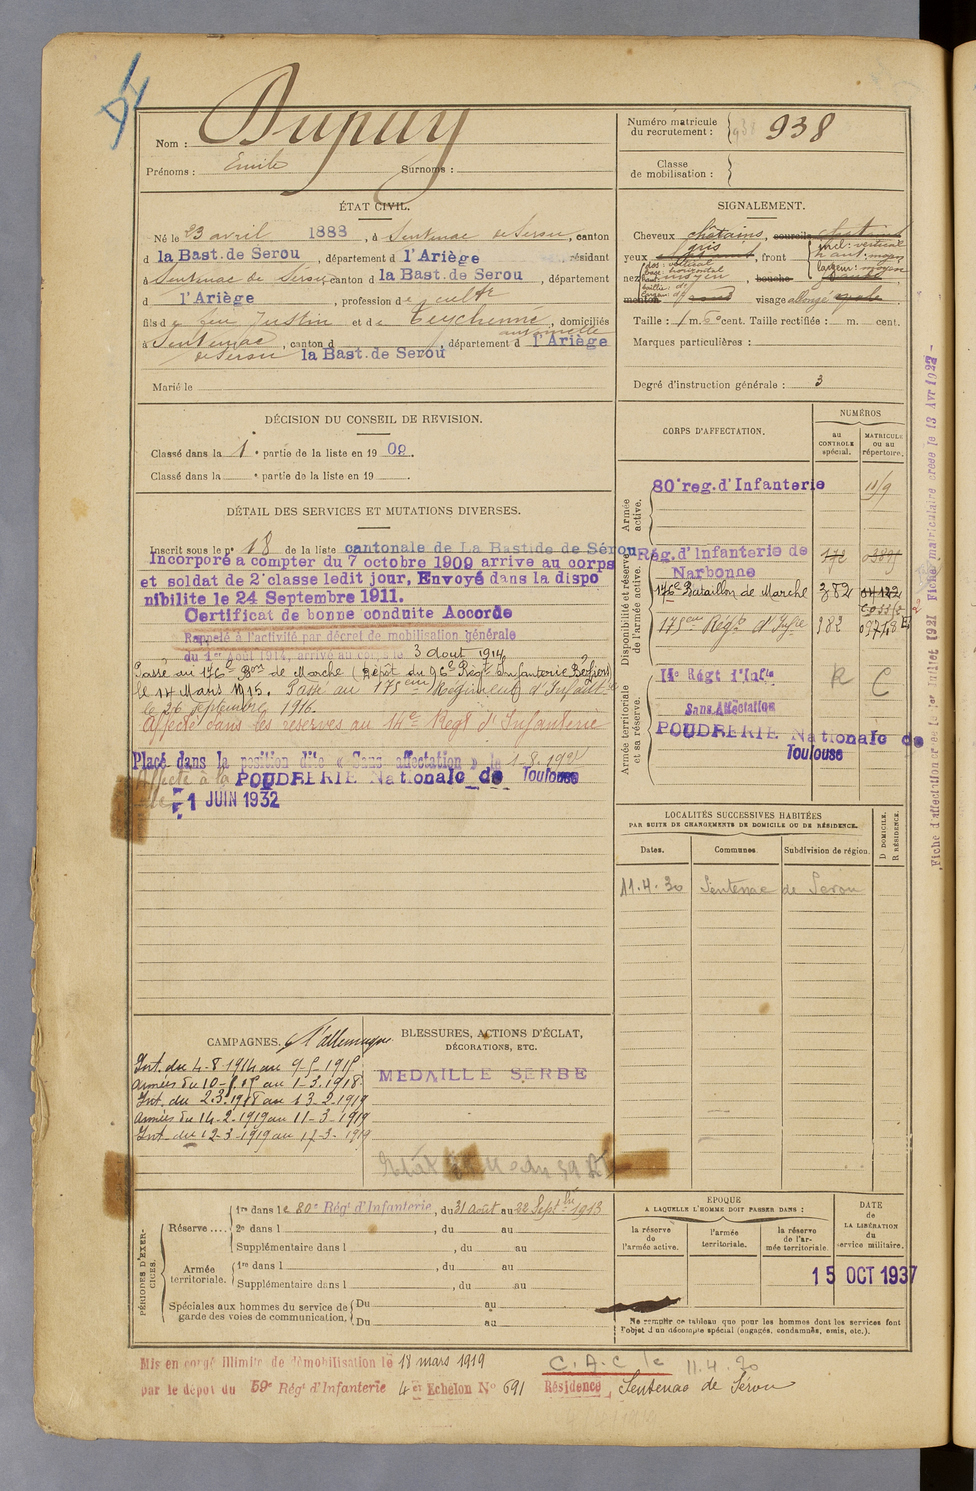 DI
Nom : Dupuy
Prénoms : Emile Surnoms :
Numéro matricule du recrutement : 938
Classe de mobilisation :
ÉTAT CIVIL.
Né le 23 avril 1888, à Sentenac de Serou, canton
d la Bast. de Serou, département d l'Ariège, résidant
à Sentenac de Serou canton d la Bast. de Serou, département
d l'Ariège, profession de cultr
fils de feu Justin et de Teychenne, domiciliés
antoinette
à Sentenac, canton d, département d l'Ariège
de Serou la Bast. de Serou
Marié le
SIGNALEMENT.
Cheveux châtains, sourcils
gris
yeux, front incl: vertical
haut: moyen
largeur: moyenne
nez moyen, bouche
dos: vertical
base: horizontal
menton visage allongé
Taille : 1 m. 60 cent. Taille rectifiée : m. cent.
Marques particulières :
Degré d'instruction générale : 3
DÉCISION DU CONSEIL DE REVISION.
Classé dans la 1e partie de la liste en 1909.
Classé dans la e partie de la liste en 19 .
DÉTAIL DES SERVICES ET MUTATIONS DIVERSES.
Inscrit sous le n° 18 de la liste cantonale de La Bastide de Sérou
Incorporé a compter du 7 octobre 1909 arrive au corps
et soldat de 2e classe ledit jour, Envoyé dans la dispo
nibilite le 24 Septembre 1911.
Certificat de bonne conduite Accordé
Rappelé à l'activité par décret de mobilisation générale
du 1er Août 1914, arrivé au corps le 3 aout 1914
Passé au 176e Bon de Marche (Dépôt du 96e Régt d'Infanterie Béziers)
le 14 Mars 1915. Passé au 175eme Régiment d'Infant-ie
le 26 septembre 1916.
Affecté dans les réserves au 14e Regt d'Infanterie
Placé dans la position dite « Sans affectation » le 1-8-192
Affecté à la POUDRERIE Nationale de Toulouse
le 1 JUIN 1932
CORPS D'AFFECTATION.
NUMÉROS
AU CONTROLE spécial.
MATRICULE ou au répertoire.
Armée active.
80e reg. d'Infanterie
Disponibilité et réserve de l'armée active.
Rég. d'Infanterie de Narbonne 172
176e Bataillon de Marche 382
175eme Régt d'Infie 982 09748
Armée territoriale et sa réserve.
Régt d'Infie R C
Sans Affectation
POUDRERIE Nationale de
Toulouse
LOCALITÉS SUCCESSIVES HABITÉES
PAR SUITE DE CHANGEMENTS DE DOMICILE OU DE RÉSIDENCE.
Dates. Communes. Subdivision de région. D DOMICILE. R RÉSIDENCE.
11.4.30 Sentenac de Serou
CAMPAGNES. C/ l'allemagne
Int. du 4-8-1914 au 9-5-1915
Armées du 10-5-15 au 1-3-1918
Int. du 2.3.1918 au 13-2-1919
Armées du 14-2-1919 au 11-3-1919
Int. du 12-3-1919 au 17-3-1919
BLESSURES, ACTIONS D'ÉCLAT,
DÉCORATIONS, ETC.
MEDAILLE SERBE
PÉRIODES D'EXERCICES.
Réserve ....
1re dans le 80e Régt d'Infanterie, du 31 août au 22 Septbre 1913
2e dans l , du au
Supplémentaire dans l , du au
Armée territoriale.
1re dans l , du au
Supplémentaire dans l , du au
Spéciales aux hommes du service de garde des voies de communication.
Du au
Du au
EPOQUE
A LAQUELLE L'HOMME DOIT PASSER DANS :
la réserve de l'armée active.
l'armée territoriale.
la réserve de l'armée territoriale.
DATE de LA LIBÉRATION du service militaire.
15 OCT 1937
Ne remplir ce tableau que pour les hommes dont les services font
l'objet d'un décompte spécial (engagés, condamnés, omis, etc.).
Mis en congé illimité de démobilisation le 18 mars 1919
par le dépôt du 59e Régt d'Infanterie 4e Echelon N° 691
C.A.C le 11.4.30
Résidence, Sentenac de Sérou
Fiche d'affectation créée le 1er Juillet 1921 Fiche matriculaire créée le 13 Avr 1922